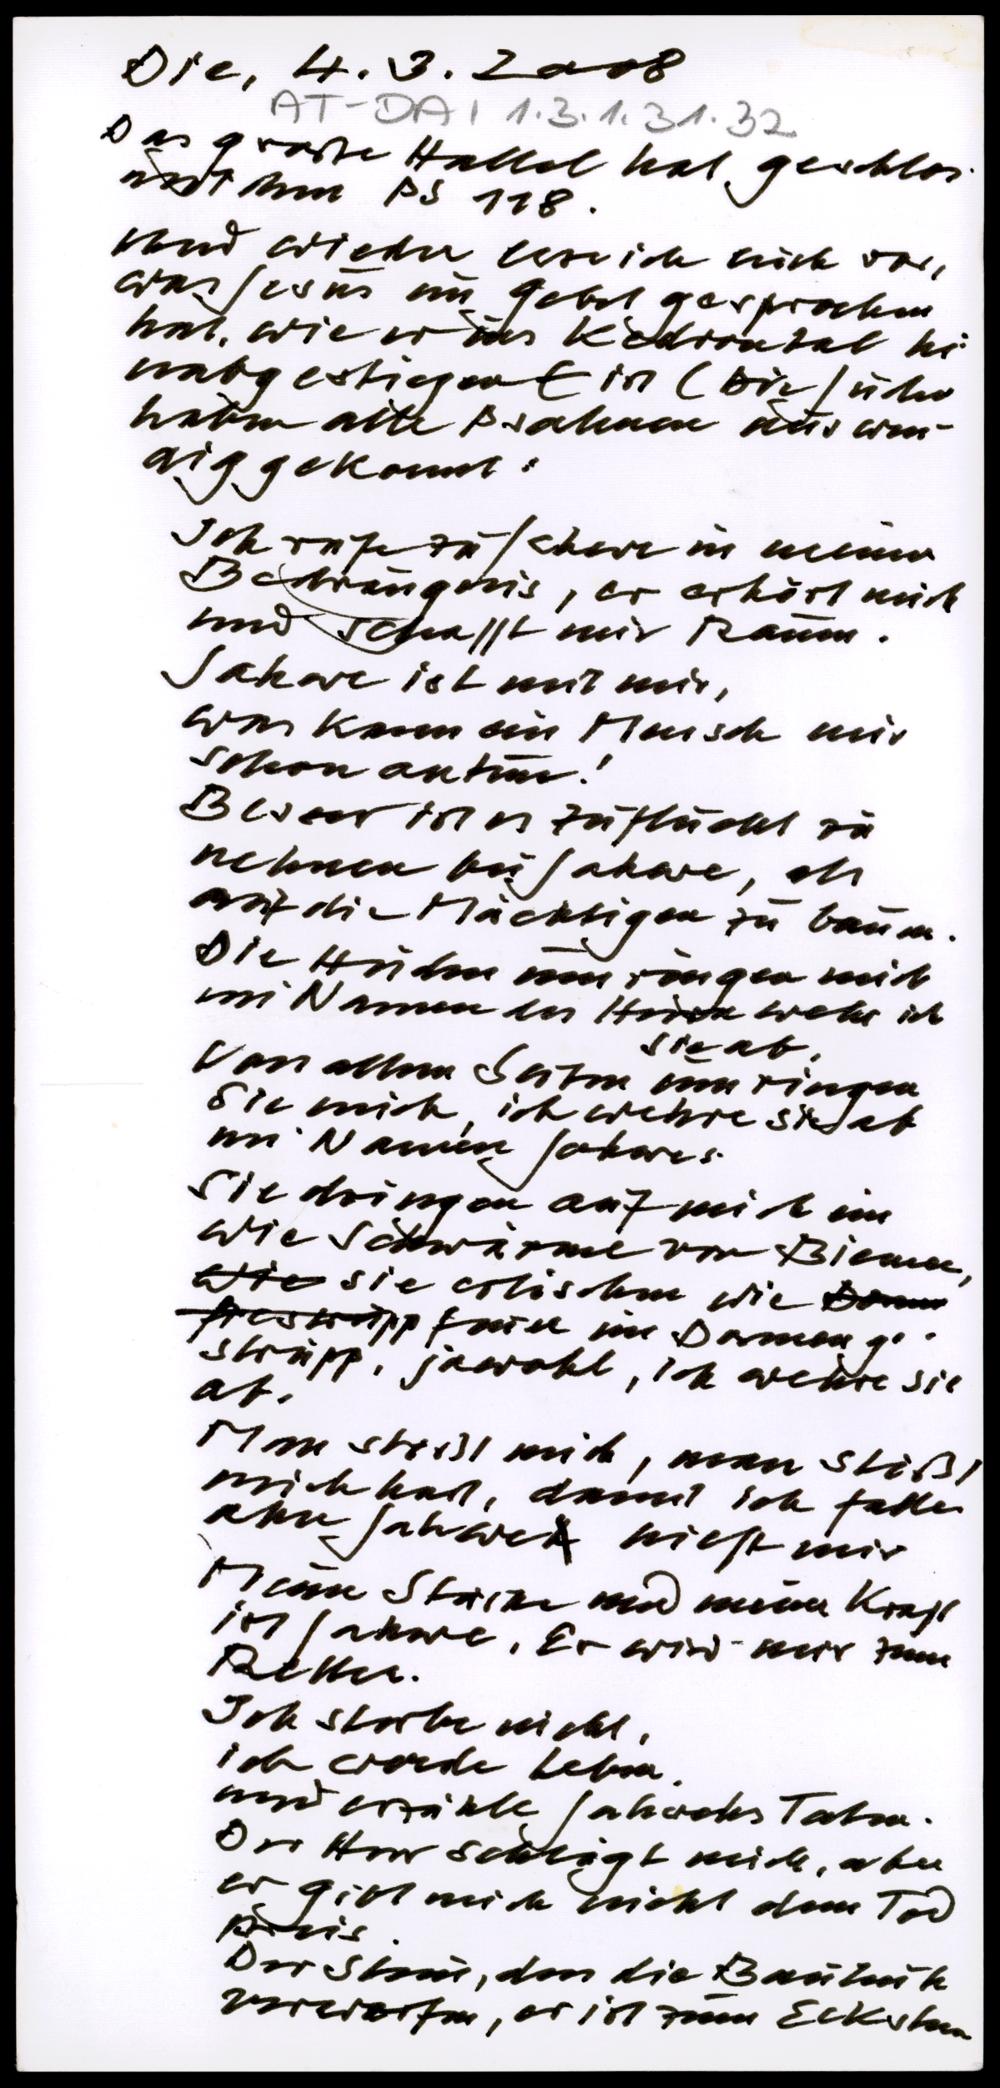 Die, 4.3.2008
AT-DAI 1.3.1.31.32
Das grosse Hallel hat geschlos.
mit dem PS 118.
Und wieder lese ich mich vor,
was Jesus im Gebet gesprochen
hat, wie er ins Kedrontal hi-
nabgestiegen ist (Die Juden
haben alle Psalmen auswen-
dig gekonnt:
Ich rufe zu Jahwe in meiner
Bedrängnis, er erhört mich
und schafft mir Raum.
Jahwe ist mit mir,
was kann ein Mensch mir
schon antun!
Besser ist es Zuflucht zu
nehmen bei Jahwe, als
auf die Mächtigen zu bauen.
Die Heiden umringen mich
im Namen des Herrn wehr ich
sie ab.
Von allen Seiten umringen
Sie mich, ich wehre sie ab
im Namen Jahwes.
Sie dringen auf mich ein
wie Schwärme von Bienen,
wie sie erlöschen wie Dorn
gestrüpp Feuer im Dornenge-
strüpp, jawohl, ich wehre sie
ab.
Man stösst mich, man stößt
mich hart, damit ich falle
aber Jahwe hilft mir
Meine Stärke und meine Kraft
ist Jahwe. Er wird mir zum
Retter.
Ich sterbe nicht,
ich werde leben
und erzähle Jahwehs Taten.
Der Herr schlägt mich, aber
er gibt mich nicht dem Tod
preis.
Der Stein, den die Bauleute
verwarfen, er ist zum Eckstein